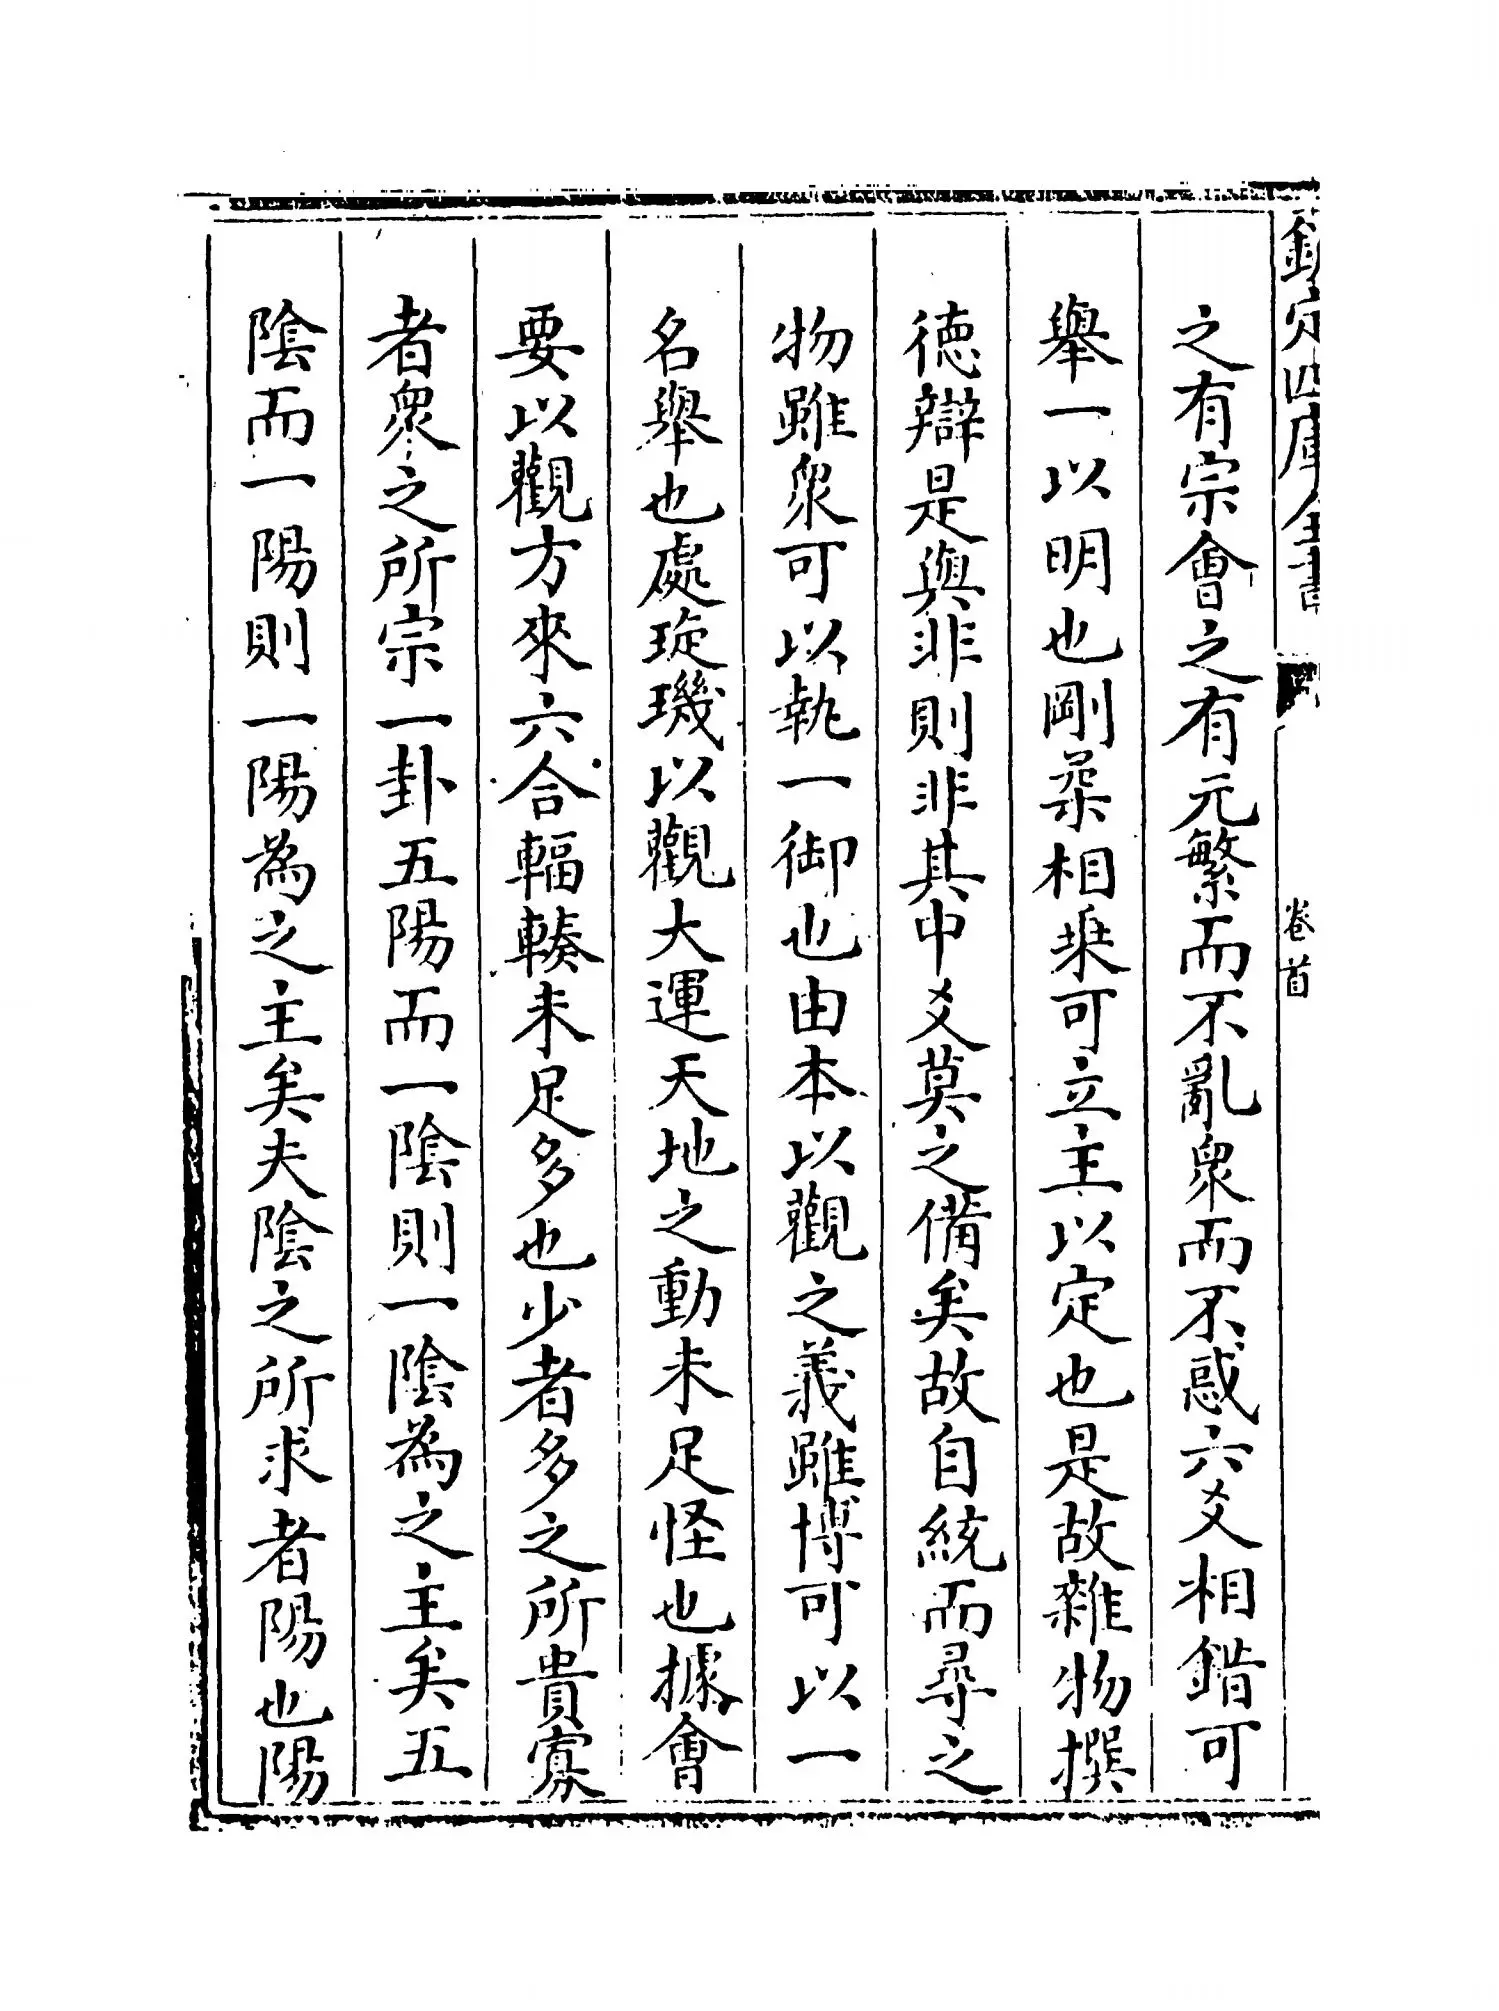 欽定四庫全書
卷首
之有宗會之有元繁而不亂衆而不惑六爻相錯可
舉一以明也剛柔相乘可立主以定也是故雜物撰
德辯是與非則非其中爻莫之備矣故自統而尋之
物雖衆可以執一御也由本以觀之義雖博可以一
名舉也處琁璣以觀大運天地之動未足怪也據會
要以觀方來六合輻輳未足多也少者多之所貴寡
者衆之所宗一卦五陽而一陰則一陰為之主矣五
陰而一陽則一陽為之主矣夫陰之所求者陽也陽